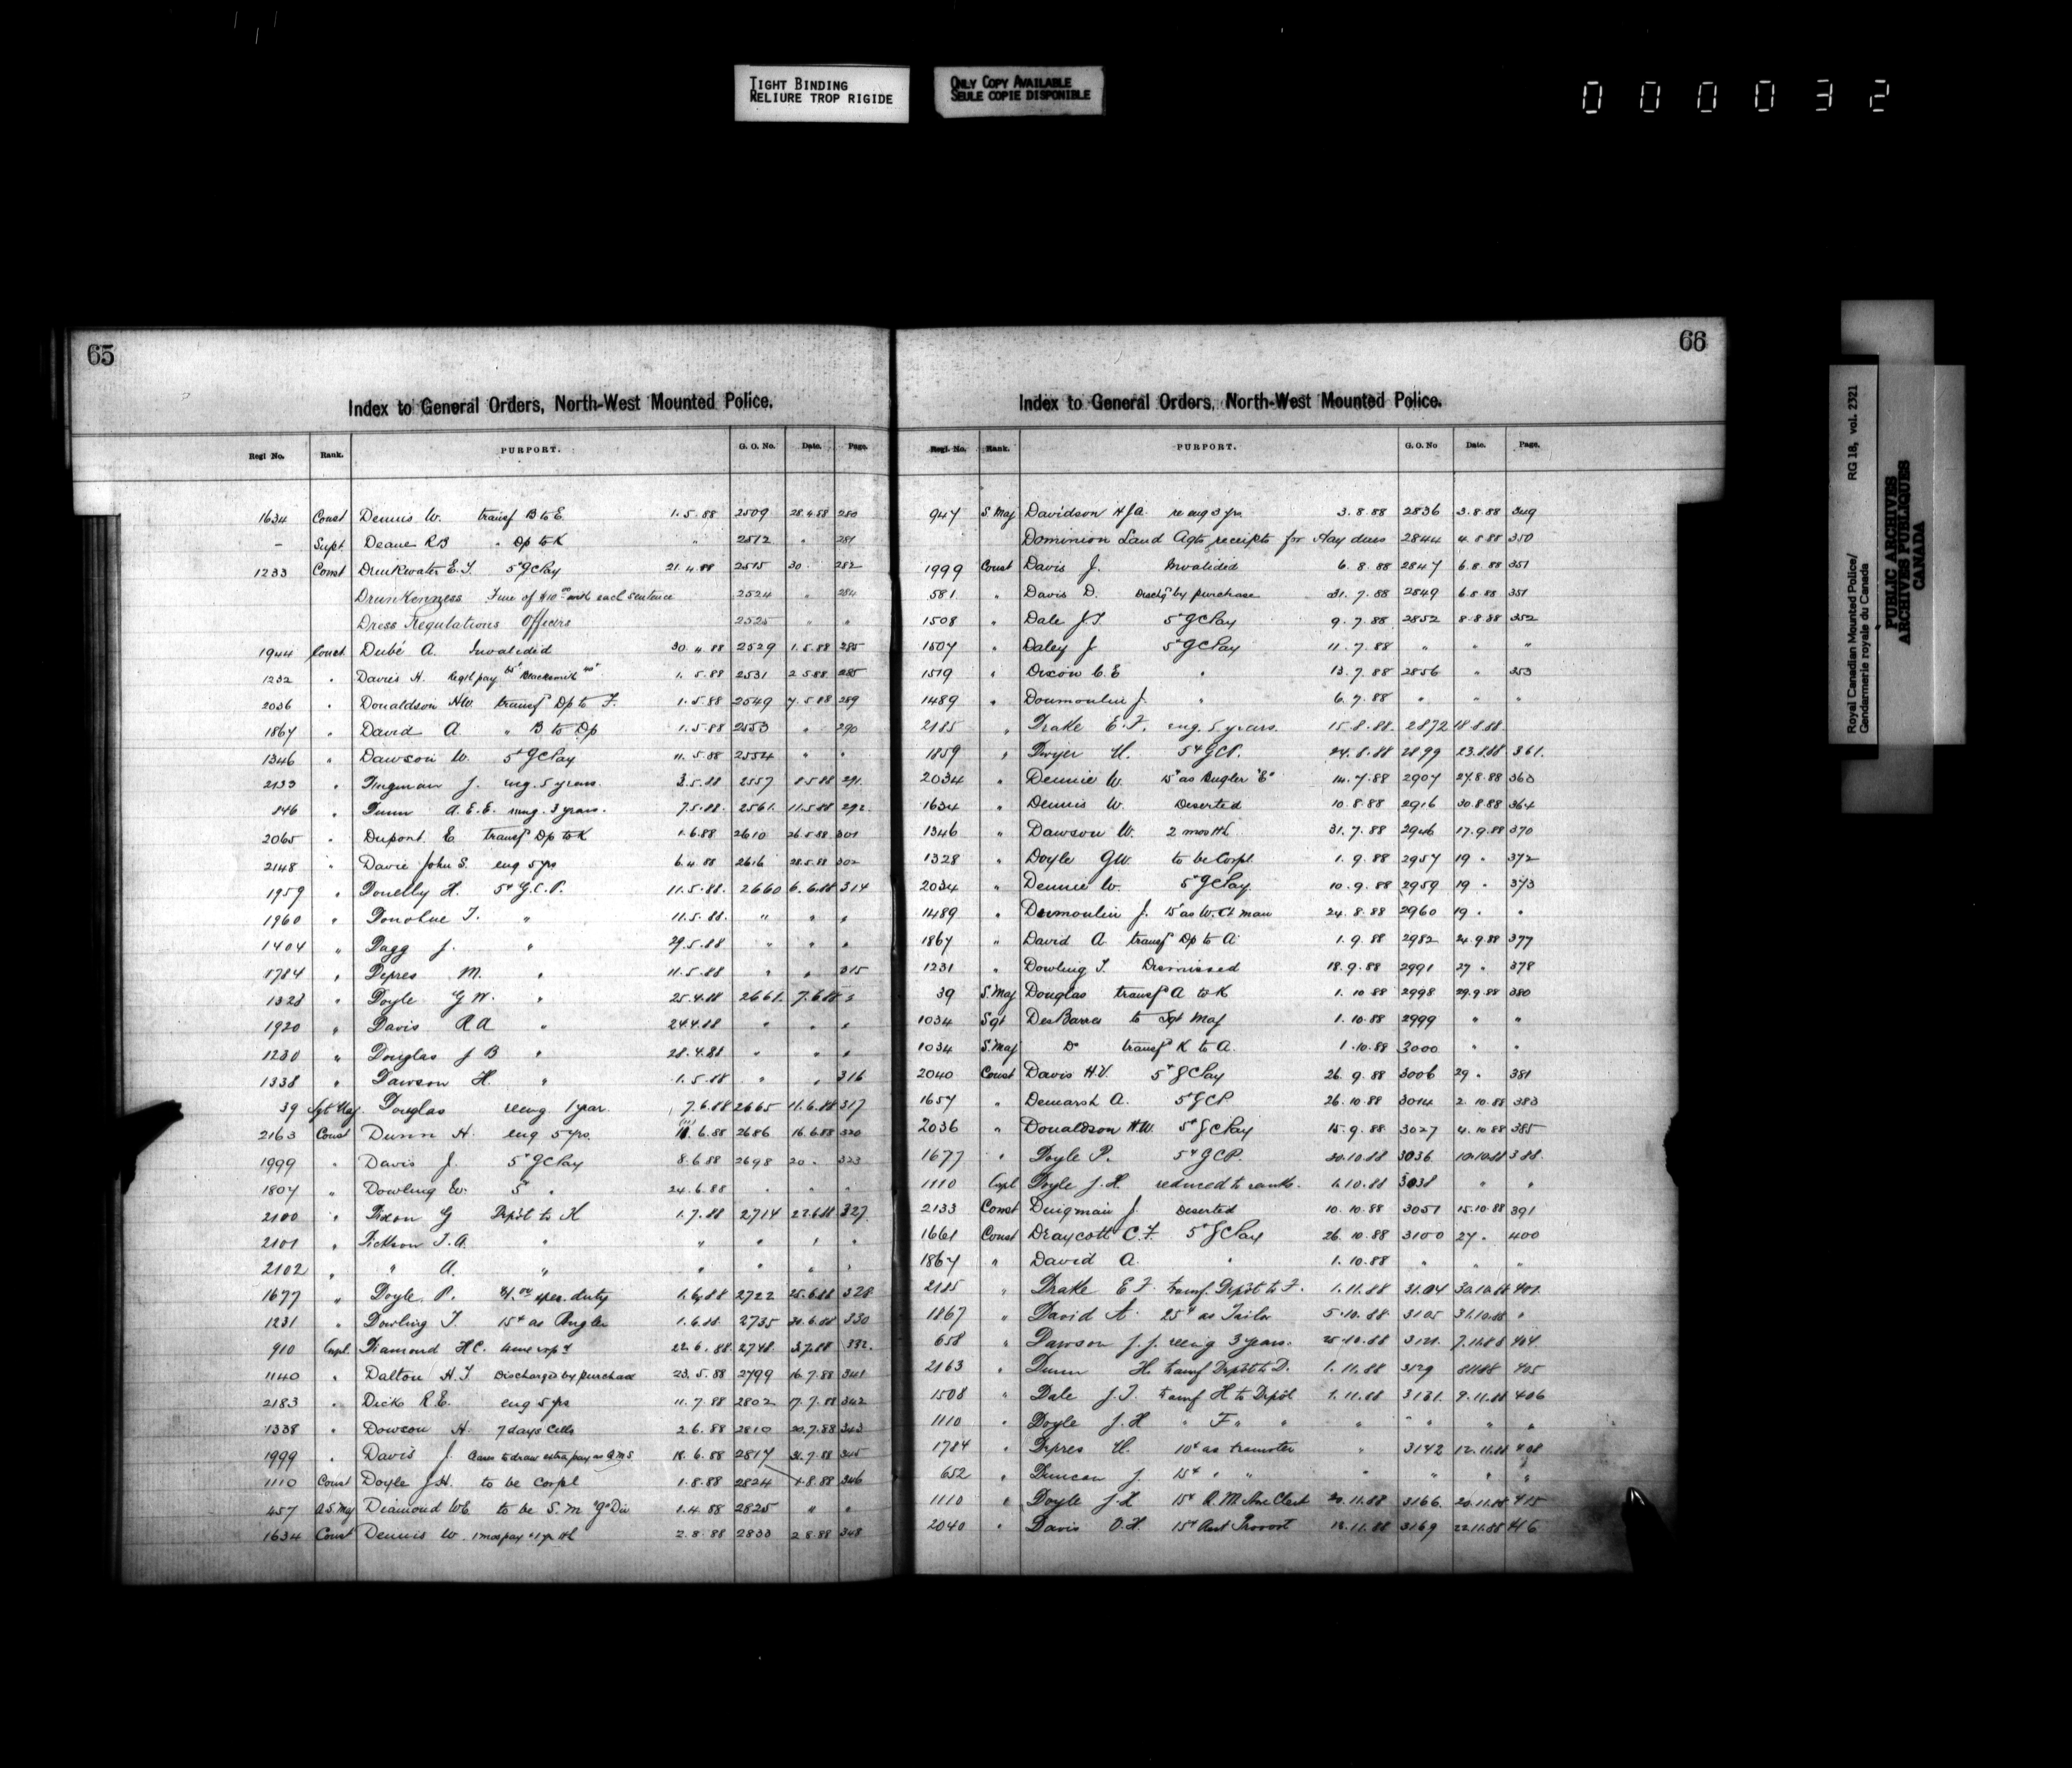 TIGHT BINDING
RELIURE TROP RIGIDE
ONLY COPY AVAILABLE
SEULE COPIE DISPONIBLE
000032
65
Index to General Orders, North-West Mounted Police.
Regl No. Rank. PURPORT. G. O. No. Date. Page.
1634 Const Dennis W. transf B to E 1.5.88 2509 28.4.88 280
- Supt Deane RB " Dp to K " 2512 " 281
1233 Const Drinkwater E.T. 5¢ GCPay 21.4.88 2515 30 " 282
Drunkenness Fine of $10.00 with each sentence 2524 " 284
Dress Regulations Officers 2525 " "
1944 Const Dubé A. Invalided 30.4.88 2529 1.5.88 285
1232 " Davies H. Regtl pay Blacksmith 1.5.88 2531 2.5.88 285
2036 " Donaldson HW. transf Dp to F. 1.5.88 2549 7.5.88 289
1867 " David A. " B to Dp 1.5.88 2553 " 290
1346 " Dawson W. 5¢ GCPay 11.5.88 2554 " "
2133 " Dingman J. eng. 5 years. 3.5.88 2557 8.5.88 291.
846 " Dunn A.E.E. reeng. 3 years. 7.5.88. 2561. 11.5.88 292.
2065 " Dupont. E transf Dp to K 1.6.88 2610 26.5.88 301
2148 " Davie John S. eng 5 yrs 6.4.88 2616 28.5.88 302
1959 " Donelly H. 5¢ G.C.P. 11.5.88. 2660 6.6.88 314
1960 " Donohue T. " 11.5.88. " " "
1404 " Dagg J. " 29.5.88 " " "
1784 " Depres M. " 11.5.88 " " 315
1328 " Doyle G.W. " 25.4.88 2661. 7.6.88 "
1920 " Davis R.A " 24.4.88 " " "
1230 " Douglas J B " 28.4.88 " " "
1338 " Dawson H. " 1.5.88 " " 316
39 Sgt Maj. Douglas reeng 1 year. 7.6.88 2665 11.6.88 317
2163 Const Dunn H. eng 5 yrs. 11.6.88 2686 16.6.88 320
1999 " Davis J. 5¢ GCPay 8.6.88 2698 20 " 323
1807 " Dowling W. 5 " 24.6.88 " " "
2100 " Dixon G Depôt to H 1.7.88 2714 22.6.88 327
2101 " Dickson T.A. " " " " "
2102 " " A. " " " " "
1677 " Doyle P. spec. duty 1.6.88 2722 25.6.88 328
1231 " Dowling T. 15¢ as Bugler 1.6.88. 2735 30.6.88 330
910 Corpl. Diamond HC. time expd 22.6.88 2748. 3.7.88 332.
1140 " Dalton H.T Discharged by purchase 23.5.88 2799 16.7.88 341
2183 " Dick R.E. eng 5 yrs 11.7.88 2802 17.7.88 342
1338 " Dowson H. 7 days Cells 2.6.88 2810 20.7.88 343
1999 " Davis J. Ceases to draw extra pay as QMS 18.6.88 2817 31.7.88 345
1110 Const Doyle J.H. to be Corpl 1.8.88 2824 1.8.88 346
457 A.S.Maj Diamond WE to be S.M "G" Div 1.4.88 2825 " "
1634 Const Dennis W 1 mos pay & 1 yr Hl 2.8.88 2833 2.8.88 348
66
Index to General Orders, North-West Mounted Police.
Regl. No. Rank. PURPORT. G. O. No Date. Page.
947 S.Maj Davidson HJA. re eng 3 yrs 3.8.88 2836 3.8.88 349
Dominion Land Agts receipts for Hay dues 2844 4.8.88 350
1999 Const Davis J. Invalided 6.8.88 2847 6.8.88 351
581 " Davis D. Dischgd by purchase 31.7.88 2849 6.8.88 351
1508 " Dale J.T. 5¢ GCPay 9.7.88 2852 8.8.88 352
1507 " Daley J 5¢ GCPay 11.7.88 " " "
1519 " Dixon C.E " 13.7.88 2856 " 353
1489 " Doumoulin J. " 6.7.88 " " "
2185 " Drake E.F. eng. 5 years. 15.8.88. 2872 18.8.88.
1859 " Dwyer 5¢ GCP. 24.8.88 2899 23.8.88 361.
2034 " Dennie W. 15¢ as Bugler "E" 14.7.88 2907 27.8.88 363
1634 " Dennis W. Deserted 10.8.88 2916 30.8.88 364
1346 " Dawson W. 2 mos Hl 31.7.88 2946 17.9.88 370
1328 " Doyle GW. to be Corpl. 1.9.88 2957 19 " 372
2034 " Dennie W. 5¢ GCPay 10.9.88 2959 19 " 373
1489 " Dumoulin J. 15¢ as W.Ct man 24.8.88 2960 19 " "
1867 " David A. transf Dp to A 1.9.88 2982 24.9.88 377
1231 " Dowling T. Dismissed 18.9.88 2991 27 " 378
39 S.Maj Douglas transf A to K 1.10.88 2998 29.9.88 380
1034 Sgt DesBarres to Sgt Maj 1.10.88 2999 " "
1034 S.Maj Do transf K to A. 1.10.88 3000 " "
2040 Const Davis H.V. 5¢ GCPay 26.9.88 3006 29 " 381
1657 " Demarsh A. 5¢ GCP 26.10.88 3014 2.10.88 383
2036 " Donaldson H.W. 5¢ GCPay 15.9.88 3027 4.10.88 385
1677 " Doyle P. 5¢ GCP. 20.10.88 3036 10.10.88 388.
1110 Corpl Doyle J.H. reduced to ranks. 1.10.88 3038 " "
2133 Const Dingman J. Deserted 10.10.88 3051 15.10.88 391
1661 Const Draycott C.F. 5¢ GCPay 26.10.88 3100 27 " 400
1867 " David A. " 1.10.88 " " "
2185 " Drake E F. transf. Depôt to F. 1.11.88 3104 30.10.88 401.
1867 " David A. 25¢ as Tailor 5.10.88 3105 31.10.88 "
658 " Dawson J.J. reeng 3 years. 25.10.88 3121. 7.11.88 404
2163 " Dunn H. transf Depôt to D. 1.11.88 3129 8.11.88 405
1508 " Dale J.T. transf H to Depôt 1.11.88 3131. 9.11.88 406
1110 " Doyle J.H " F " " " " " " "
1784 " Depres 10¢ as teamster " 3142 12.11.88 408
652 " Duncan J. 15¢ " " " " " "
1110 " Doyle J.H 15¢ Clerk 20.11.88 3166. 20.11.88 415
2040 " Davis 15¢ Asst Provost 18.11.88 3169 22.11.88 416
Royal Canadian Mounted Police/ RG 18, vol. 2321
Gendarmerie royale du Canada
PUBLIC ARCHIVES
ARCHIVES PUBLIQUES
CANADA